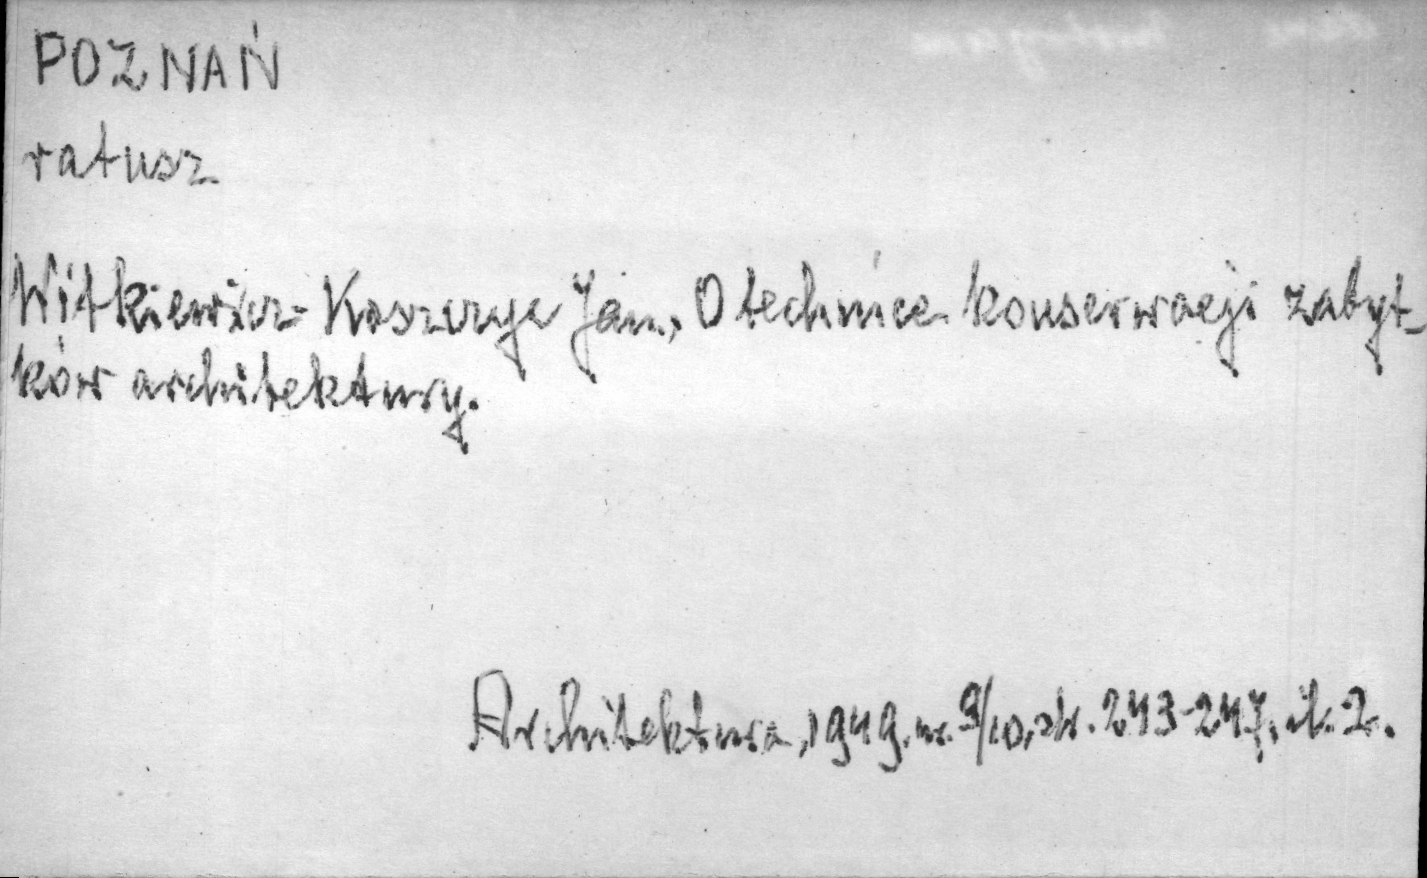 POZNAŃ
ratusz
Witkiewicz-Koszczyc Jan, O technice konserwacji zabyt-
ków architektury.
Architektura, 1949. nr. 9/10, str. 243-247, il. 2.